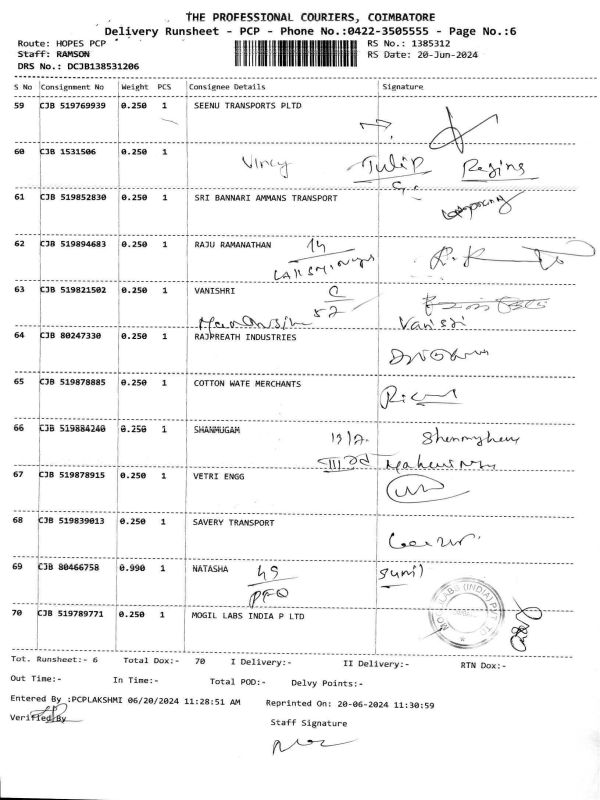 THE PROFESSIONAL COURIERS, COIMBATORE
Delivery Runsheet - PCP - Phone No.:0422-3505555 - Page No.:6
Route: HOPES PCP RS No.: 1385312
Staff: RAMSON RS Date: 20-Jun-2024
DRS No.: DCJB138531206
S No Consignment No Weight PCS Consignee Details Signature
59 CJB 519769939 0.250 1 SEENU TRANSPORTS PLTD
60 CJB 1531506 0.250 1
Vincy Tulip Regins
61 CJB 519852830 0.250 1 SRI BANNARI AMMANS TRANSPORT
62 CJB 519894683 0.250 1 RAJU RAMANATHAN 14
63 CJB 519821502 0.250 1 VANISHRI
52 Vanissi
64 CJB 80247330 0.250 1 RAJPREATH INDUSTRIES
65 CJB 519878885 0.250 1 COTTON WATE MERCHANTS
66 CJB 519884240 0.250 1 SHANMUGAM
67 CJB 519878915 0.250 1 VETRI ENGG
68 CJB 519839013 0.250 1 SAVERY TRANSPORT
69 CJB 80466758 0.990 1 NATASHA Sunil
70 CJB 519789771 0.250 1 MOGIL LABS INDIA P LTD
Tot. Runsheet:- 6 Total Dox:- 70 I Delivery:- II Delivery:- RTN Dox:-
Out Time:- In Time:- Total POD:- Delvy Points:-
Entered By :PCPLAKSHMI 06/20/2024 11:28:51 AM Reprinted On: 20-06-2024 11:30:59
Verified By Staff Signature